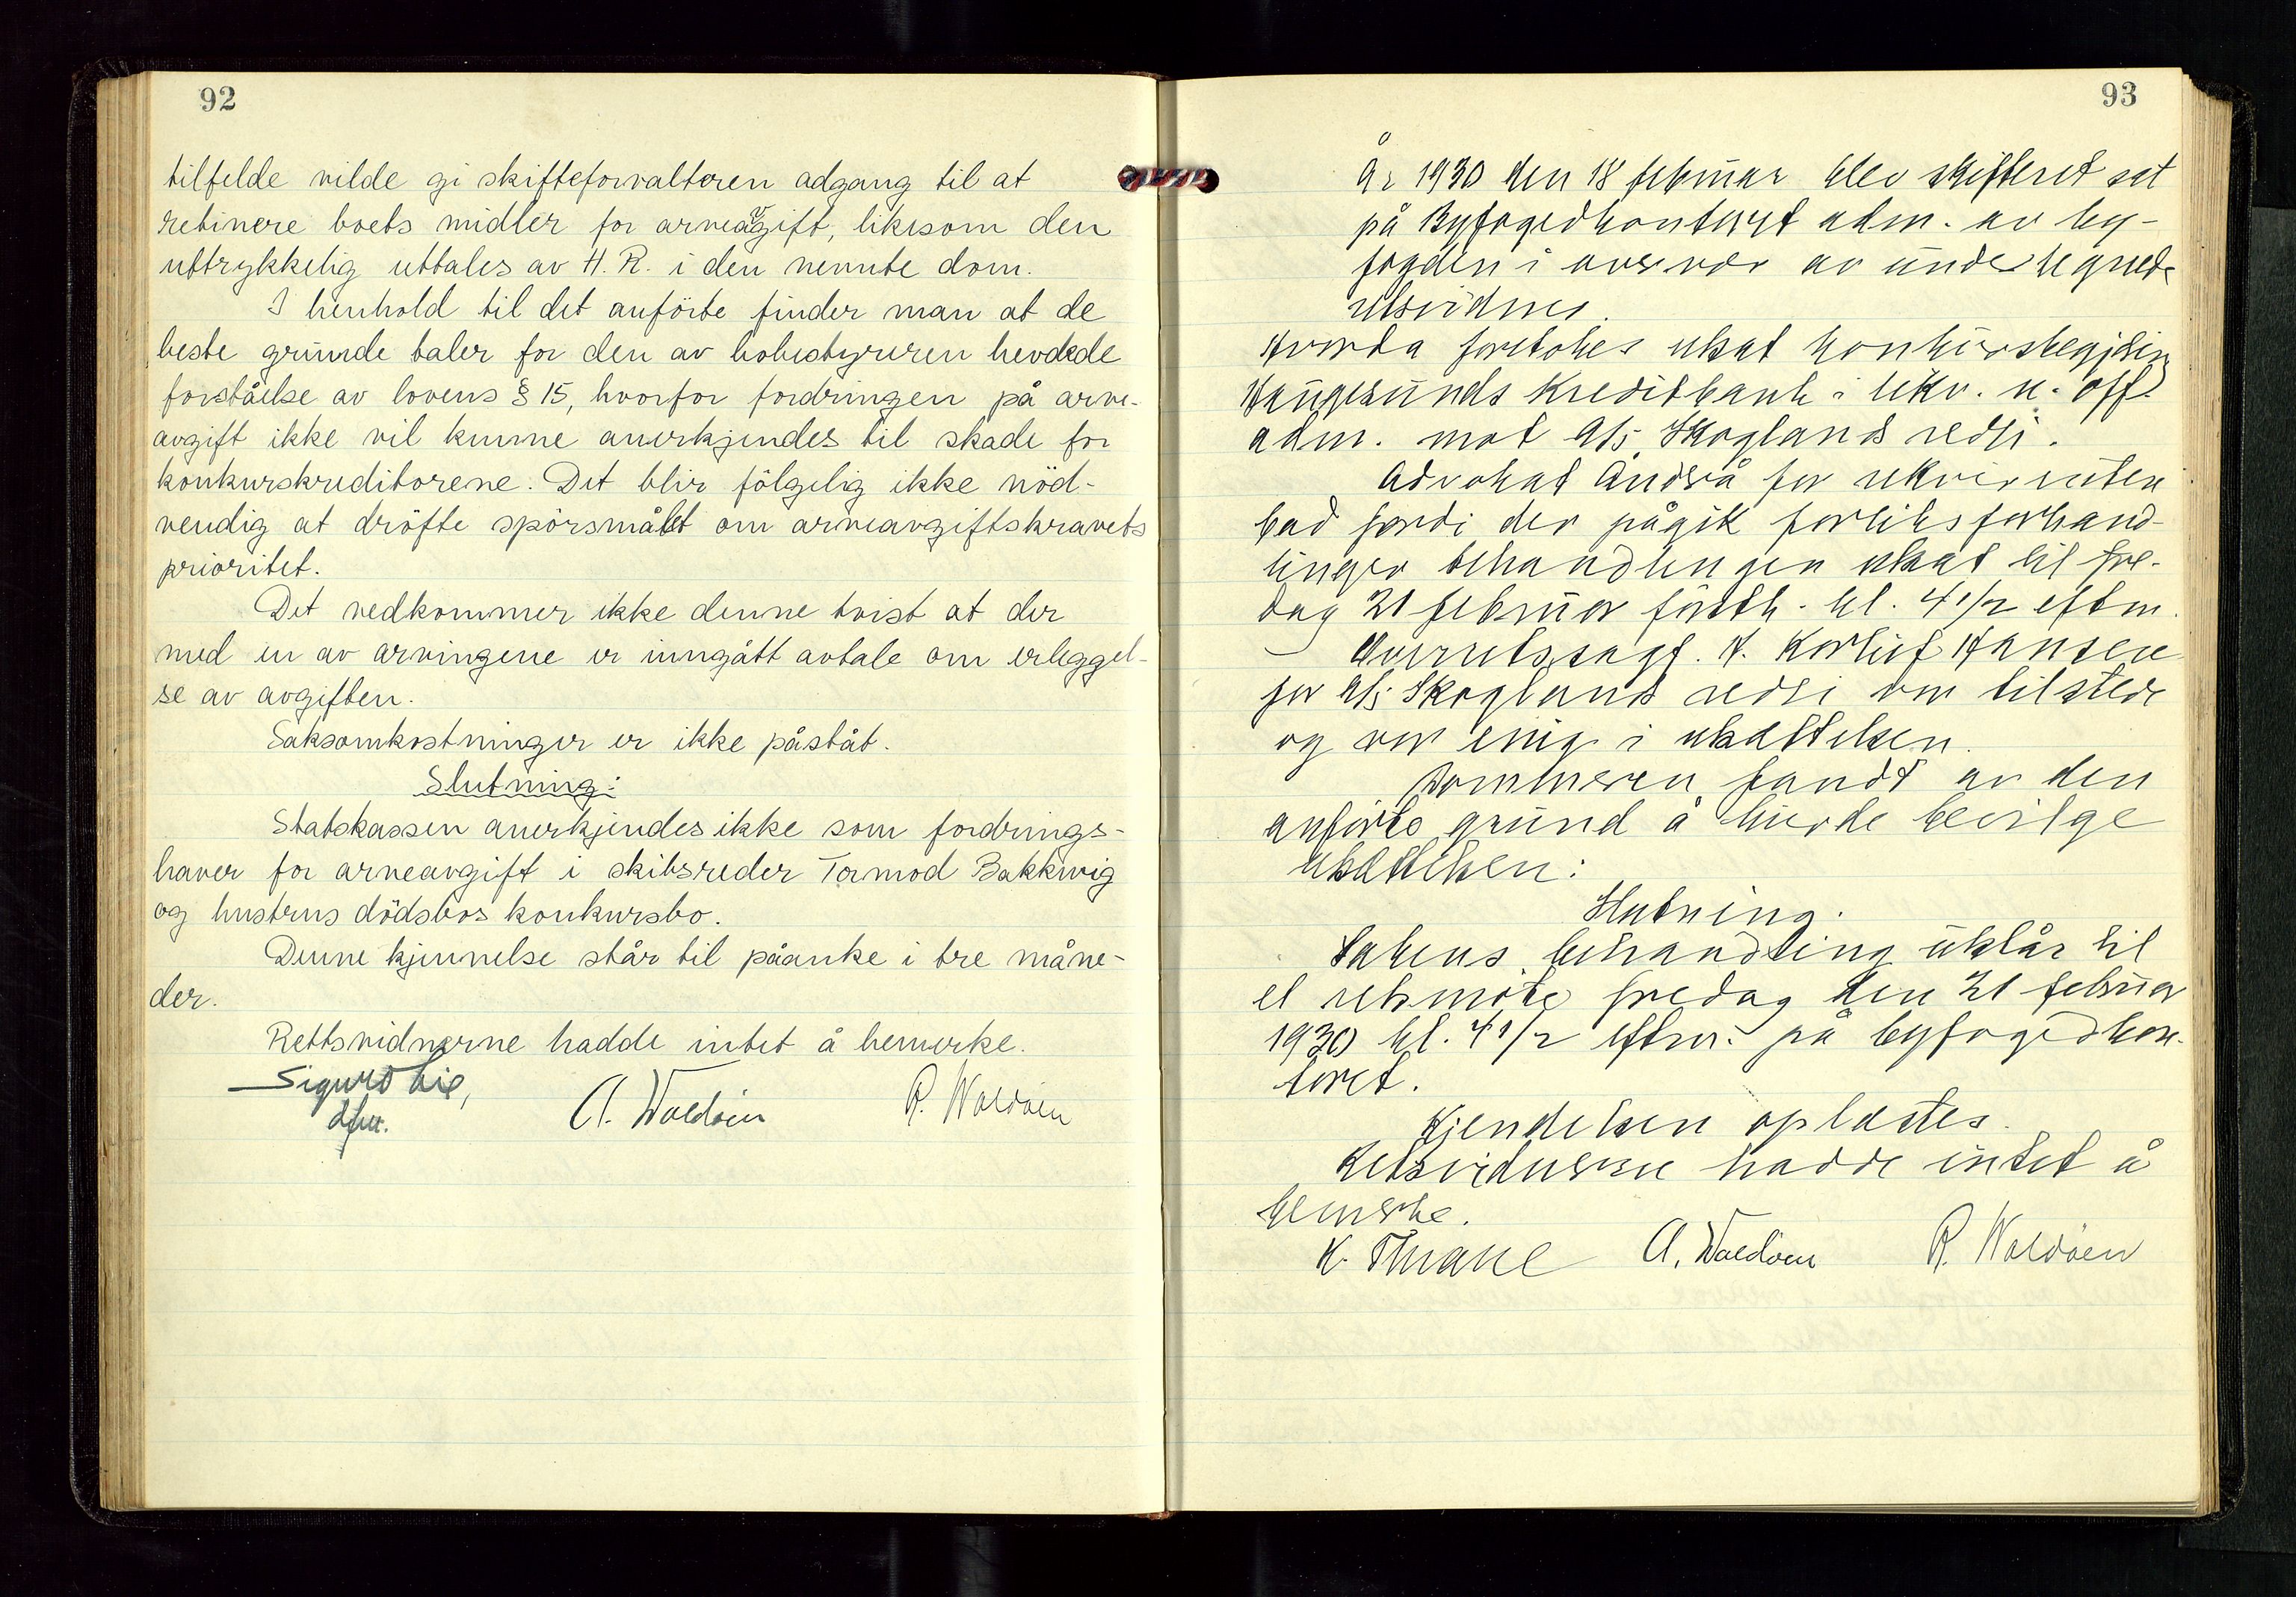 92
tilfelde vilde gi skifteforvalteren adgang til at
retinere boets midler for arveavgift, likesom den
uttrykkelig uttales av H. R. i den nevnte dom.
I henhold til det anförte finder man at de
beste grunde taler for den av bobestyreren hevdede
forståelse av lovens § 15, hvorfor fordringen på arve-
avgift ikke vil kunne anerkjendes til skade for
konkurskreditorene. Det blir fölgelig ikke nöd-
vendig at dröfte spörsmålet om arveavgiftskravets
prioritet.
Det vedkommer ikke denne tvist at der
med en av arvingene er inngått avtale om erleggel-
se av avgiften.
Saksomkostninger er ikke påståt.
Slutning:
Statskassen anerkjendes ikke som fordrings-
haver for arveavgift i skibsreder Tormod Bakkevig
og hustrus dödsbos konkursbo.
Denne kjennelse står til påanke i tre måne-
der.
Rettsvidnerne hadde intet å bemerke.
Sigurd Lie,
dfm.
A. Waldöen
R. Waldöen
93
År 1930 den 18 februar blev skifteret sat
på Byfogedkontoret adm. av by-
fogden i overvær av undertegnede
retsvidner.
Hvorda foretokes utsat konkursbegjæring
Haugesunds Kreditbank i likv. u. off.
adm. mot A/S Skoglands rederi.
Advokat Andrå for rekvirenten
bad fordi der pågik forliksforhand-
linger behandlingen utsat til fre-
dag 21 februar førstk. kl. 4 1/2 eftm.
Overretssagf. H. Hansen
for A/S Skoglands rederi var tilstede
og var enig i utsættelsen.
Dommeren fandt av den
anførte grund å burde bevilge
utsættelsen:
Slutning.
Sakens behandling utstår til
et retsmøte fredag den 21 februar
1930 kl. 4 1/2 eftm. på byfogedkon-
toret.
Kjendelsen oplæstes.
Retsvidnerne hadde intet å
bemerke.
K. Thrane
A. Waldöen
R. Waldöen